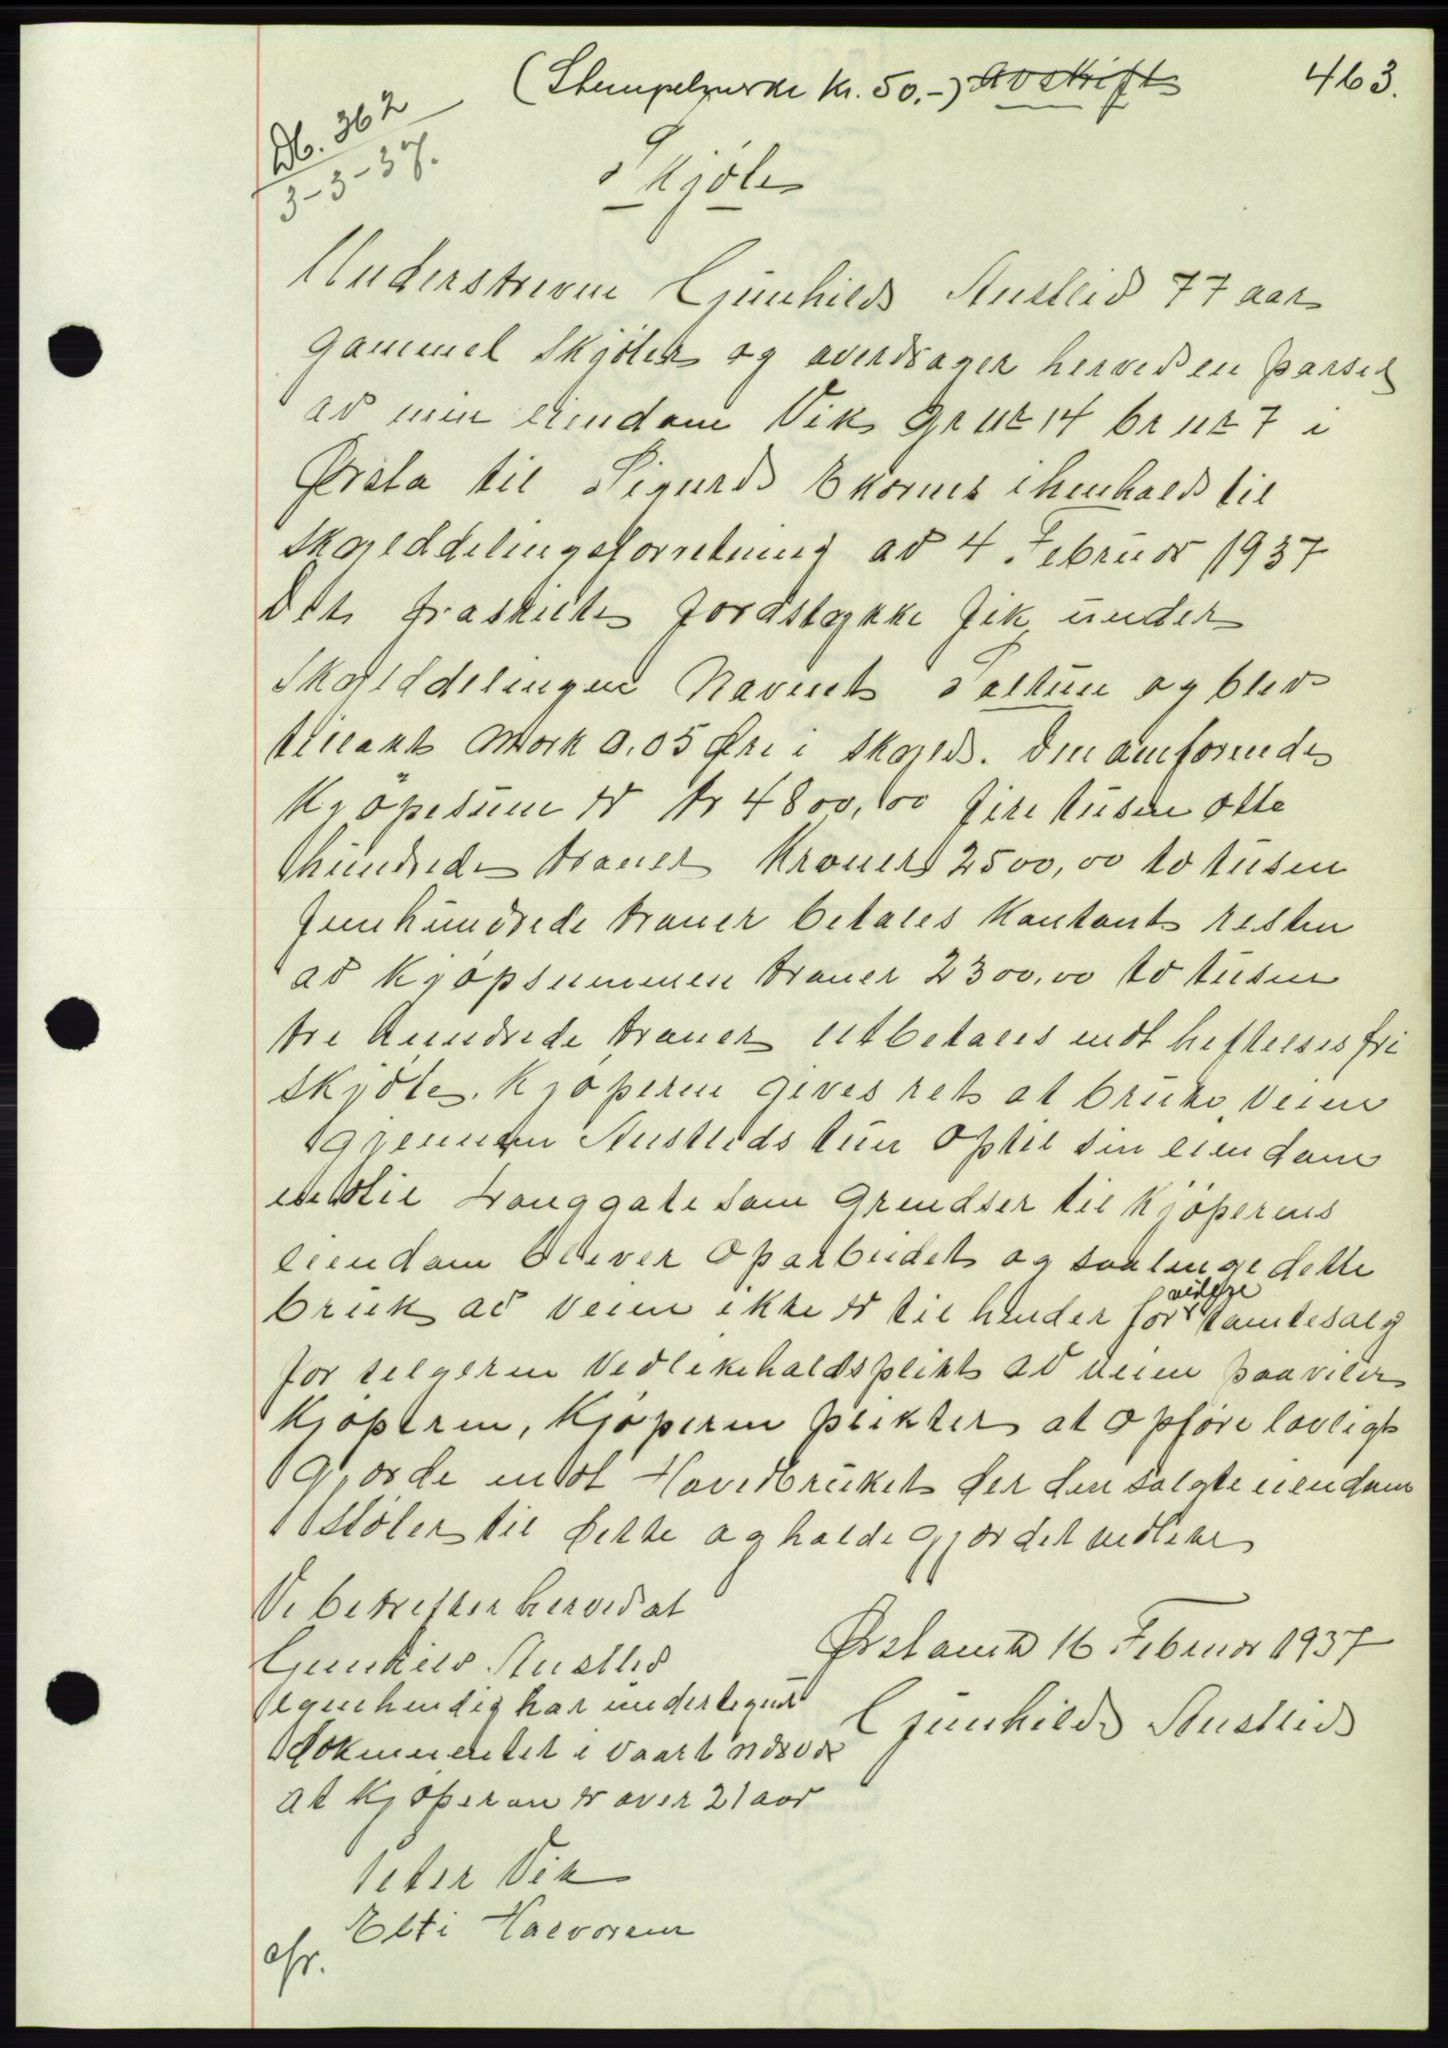 (Stempelmerke kr. 50.-) Avskrift 463.
Db. 362
3-3-37.
Skjöte
Underskrevne Gunhild Austlid 77 aar
gammel skjøter og averdrager herved en parsel
av min eiendom Vik gr nr 14 br nr 7 i
Ørsta til Sigurd Ekornes i henhold til
skylddelingsforretning av 4 Februar 1937
Det fraskilte jordstykke fik under
skylddelingen Navnet Soltun og blev
tillakt mark 0,05 Øre i skyld. Den omforenede
Kjöpesum er kr 4800,00 fire tusen otte
hundrede kroner Kroner 2500,00 to tusen
femhundrede kroner betales kontant resten
av kjöpsummen kroner 2300,00 to tusen
tre hundrede kroner utbetales mot heftelsesfri
skjöte. Kjöperen gives ret at bruke veien
gjennem Austlids tun op til sin eiendom
indtil tverggate som grendser til kjöperens
eiendom bliver oparbeidet og saalenge dette
bruk av veien ikke er til hinder for videre tomtesalg
for selgeren Vedlikeholdsplikt av veien paaviler
kjöperen, Kjöperen plikter at opføre lovligt
gjærde mot Hovedbruket der den solgte eiendom
støter til dette og holde gjærdet vedlike
Vi bekrefter herved at
Gunhild Austlid
egenhendig har undertegnet
dokumentet i vaart nærvær
at kjöperen er over 21 aar
Ørstavik 16 Februar 1937
Gunhild Austlid
Peter Vik
Elti Halvorsen
afr.